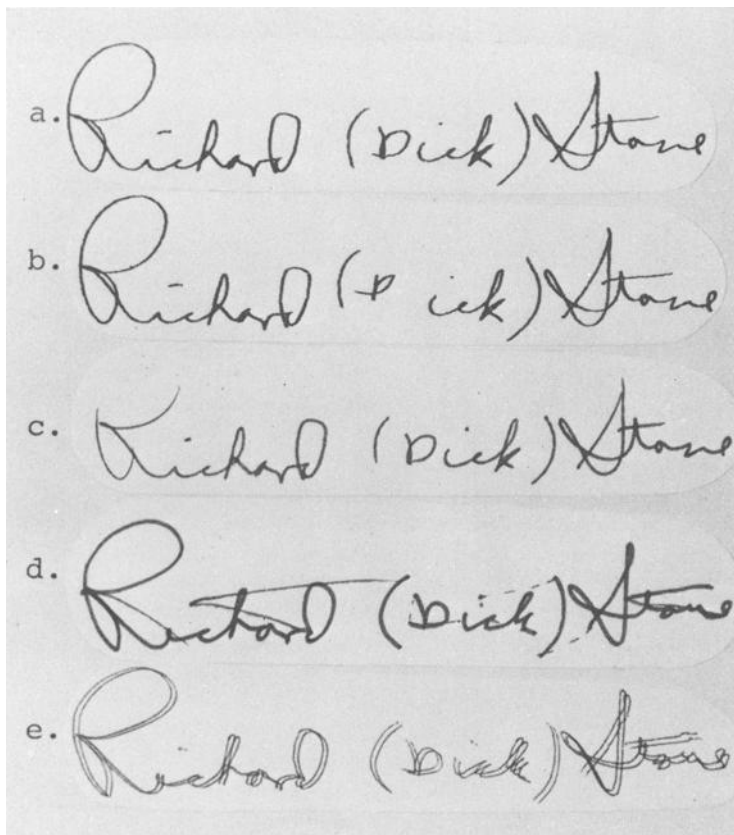 a. Richard (Dick) Stone
b. Richard (D ick) Stone
c. Richard (Dick) Stone
d. Richard (Dick) Stone
e. Richard (Dick) Stone